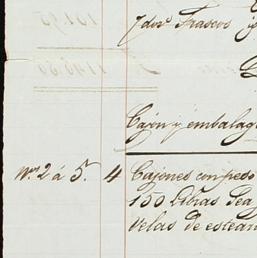 7 doz. Frascos
Cajon y embalag
Nos. 2 á 5. 4 Cajones con peso
150 Libras
Velas de estear